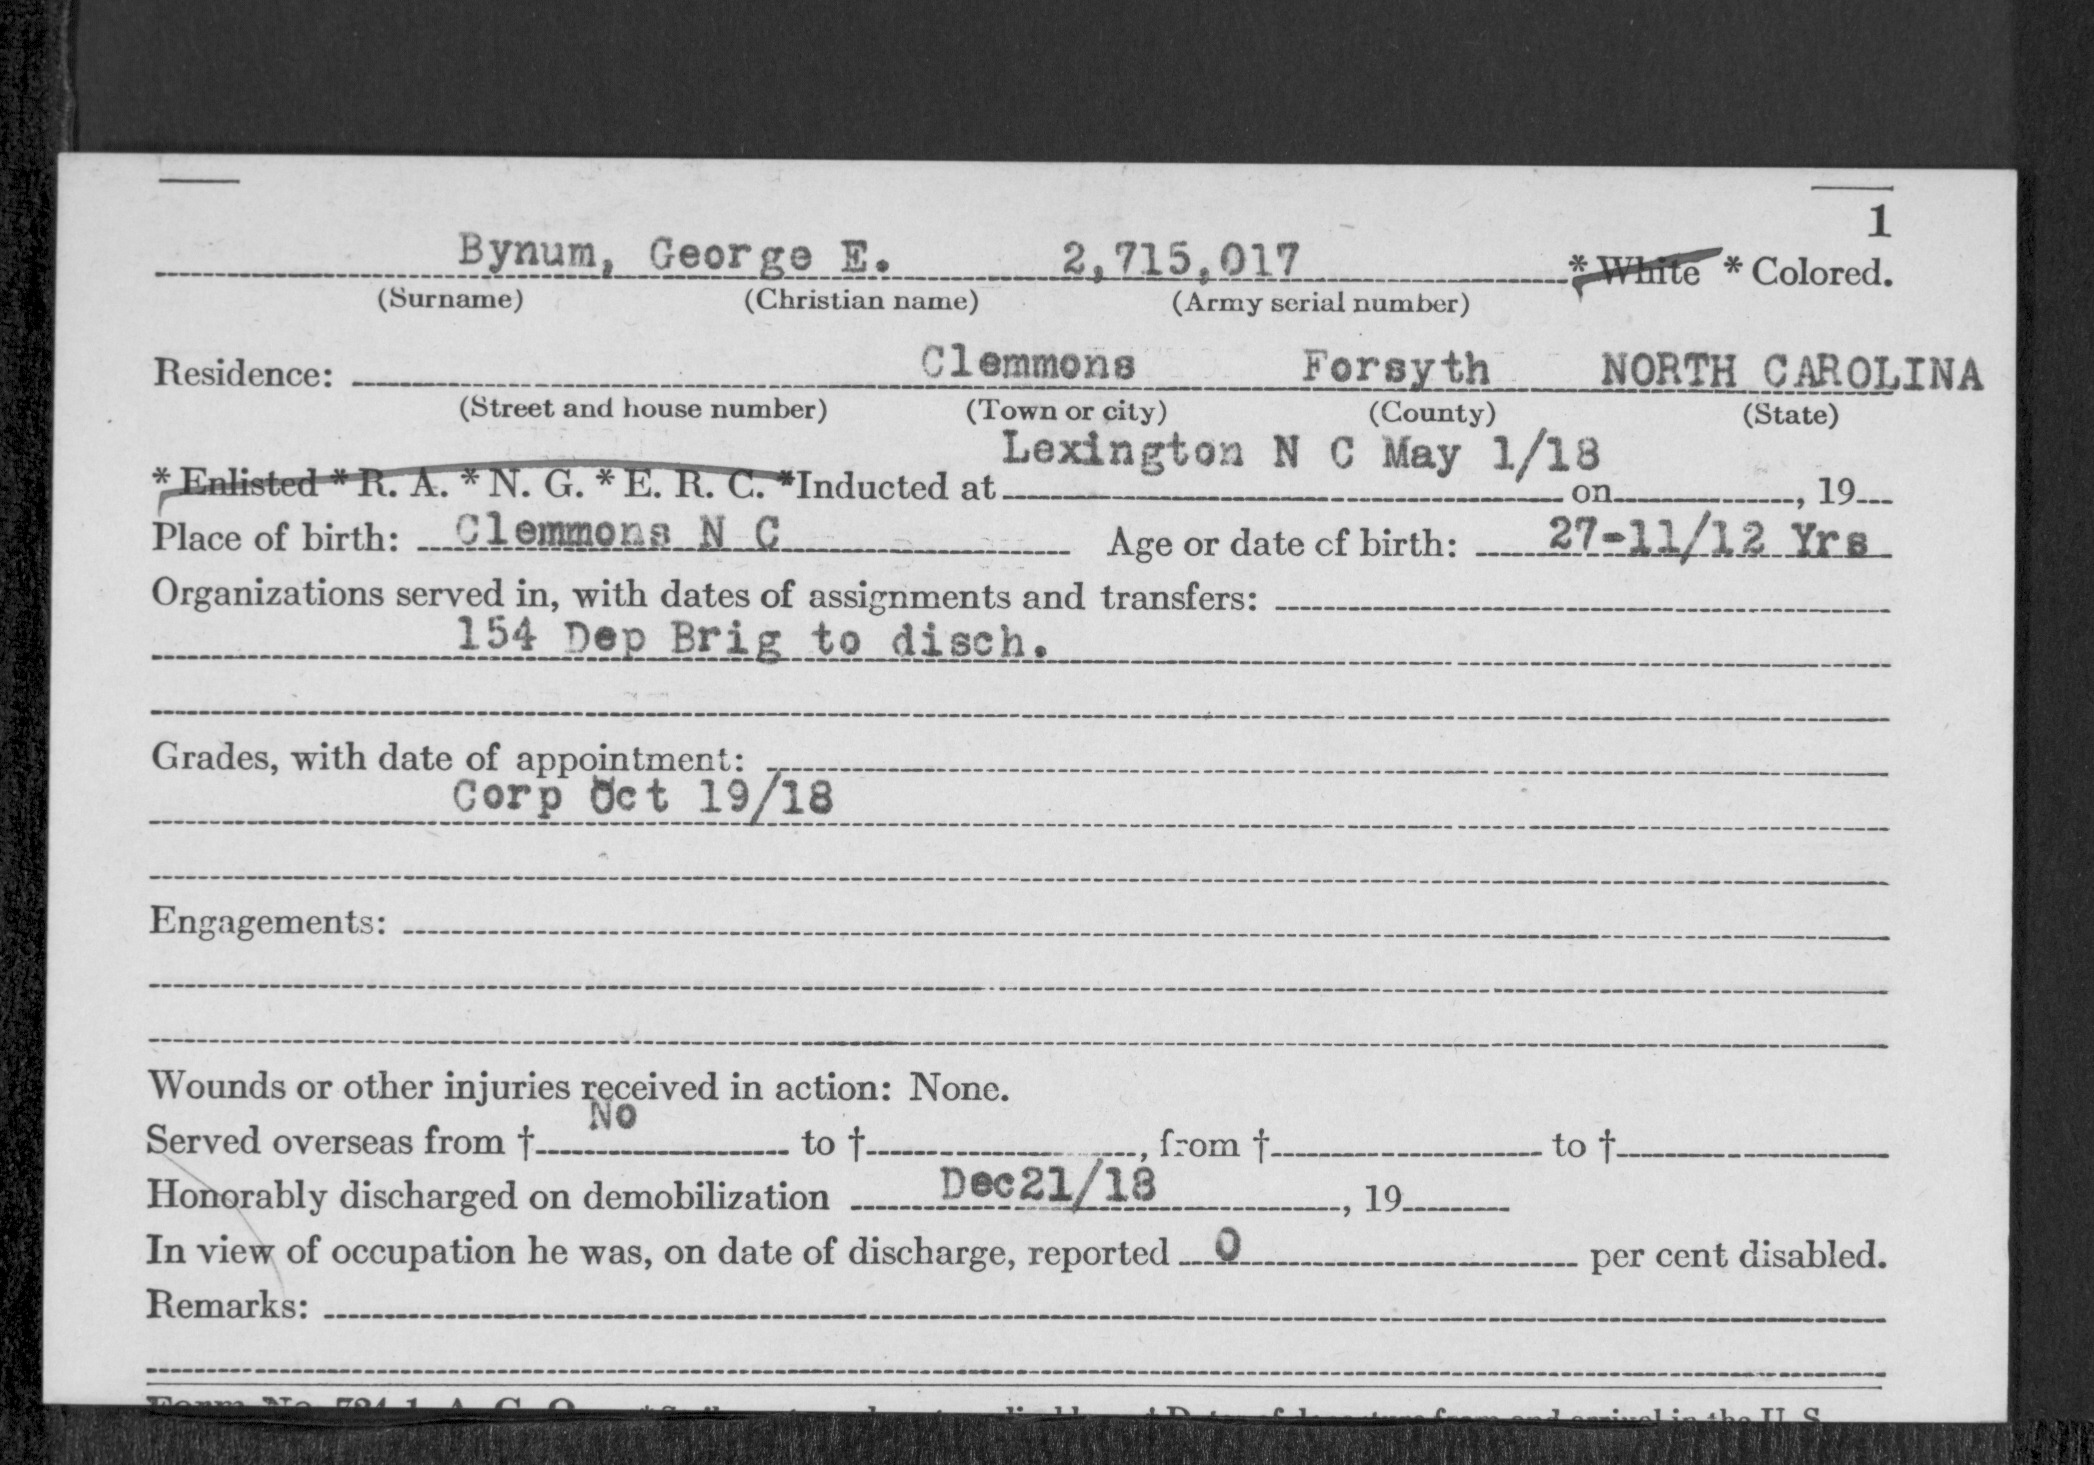 1
Bynum, George E. 2,715,017 * White * Colored.
(Surname) (Christian name) (Army serial number)
Residence: Clemmons Forsyth NORTH CAROLINA
(Street and house number) (Town or city) (County) (State)
Lexington N C May 1/18
* Enlisted * R. A. * N. G. * E. R. C. *Inducted at on , 19
Place of birth: Clemmons N C Age or date of birth: 27-11/12 Yrs
Organizations served in, with dates of assignments and transfers:
154 Dep Brig to disch.
Grades, with date of appointment:
Corp Oct 19/18
Engagements:
Wounds or other injuries received in action: None.
No
Served overseas from † to † , from † to †
Honorably discharged on demobilization Dec21/18 , 19
In view of occupation he was, on date of discharge, reported 0 per cent disabled.
Remarks:
Form No. 724-1, A. G. O.